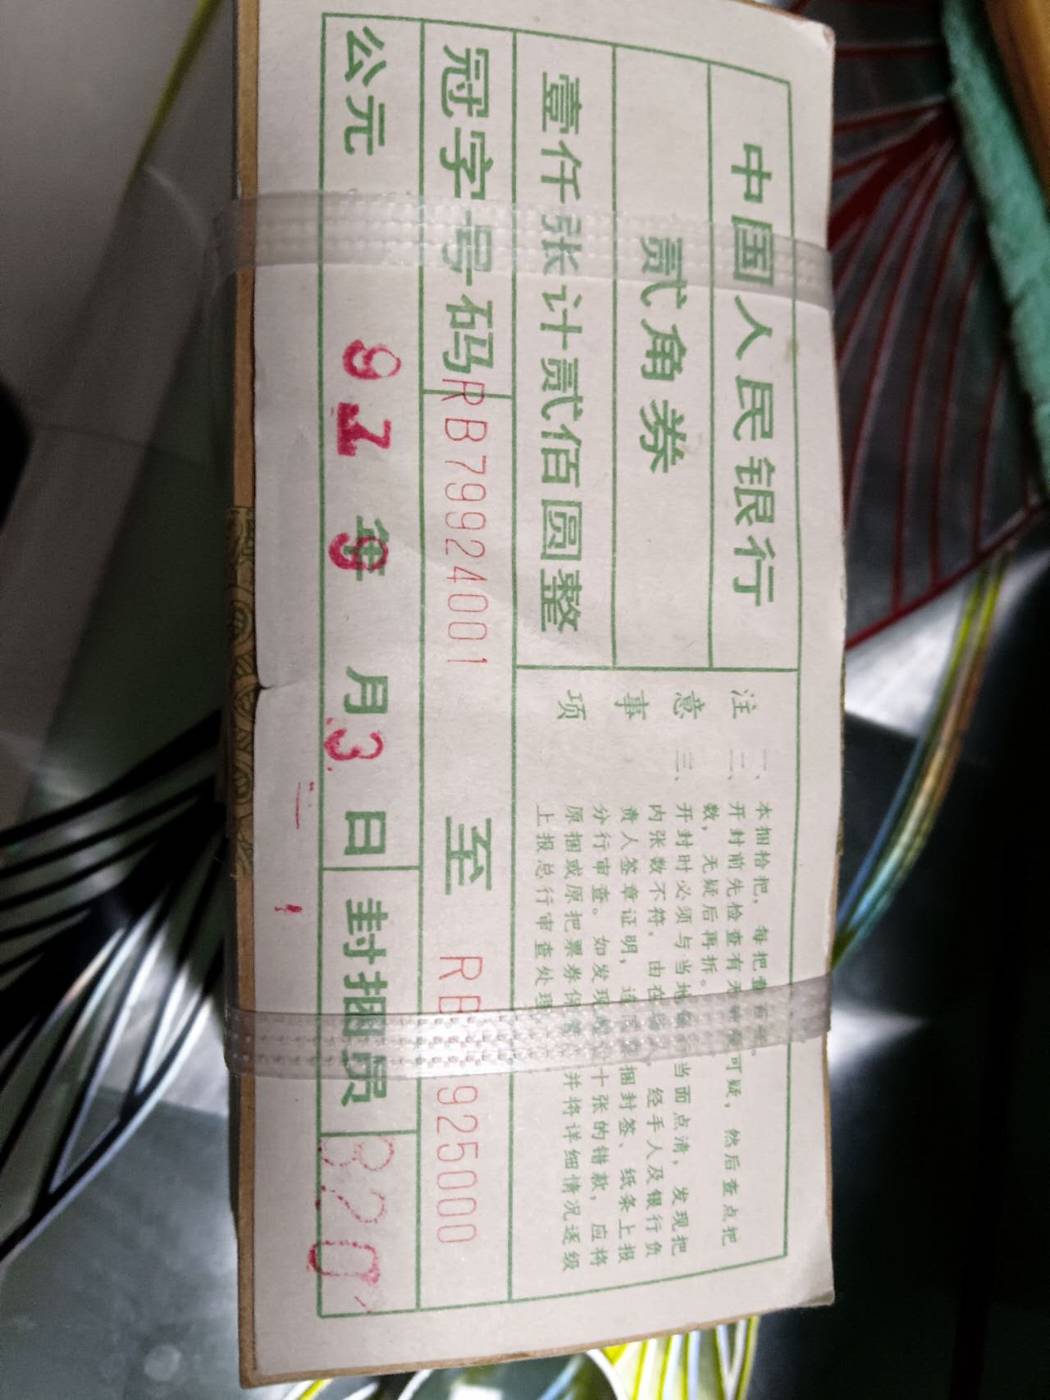 中国人民银行
贰角券
壹仟张计贰佰圆整
注意事项
一、本捆拾把，每把壹百张。
二、开封前先检查有无 可疑，然后查点把
数，无疑后再拆。
三、开封时必须与当地 当面点清，发现把
内张数不符，由在场 经手人及银行负
责人签章证明，连 捆封签、纸条上报
分行审查。如发现 十张的错款，应将
原捆或原把票券保管 并将详细情况逐级
上报总行审查处理
冠字号码 RB79924001 至 RB 925000
公元 91年9月3日 封捆员 320